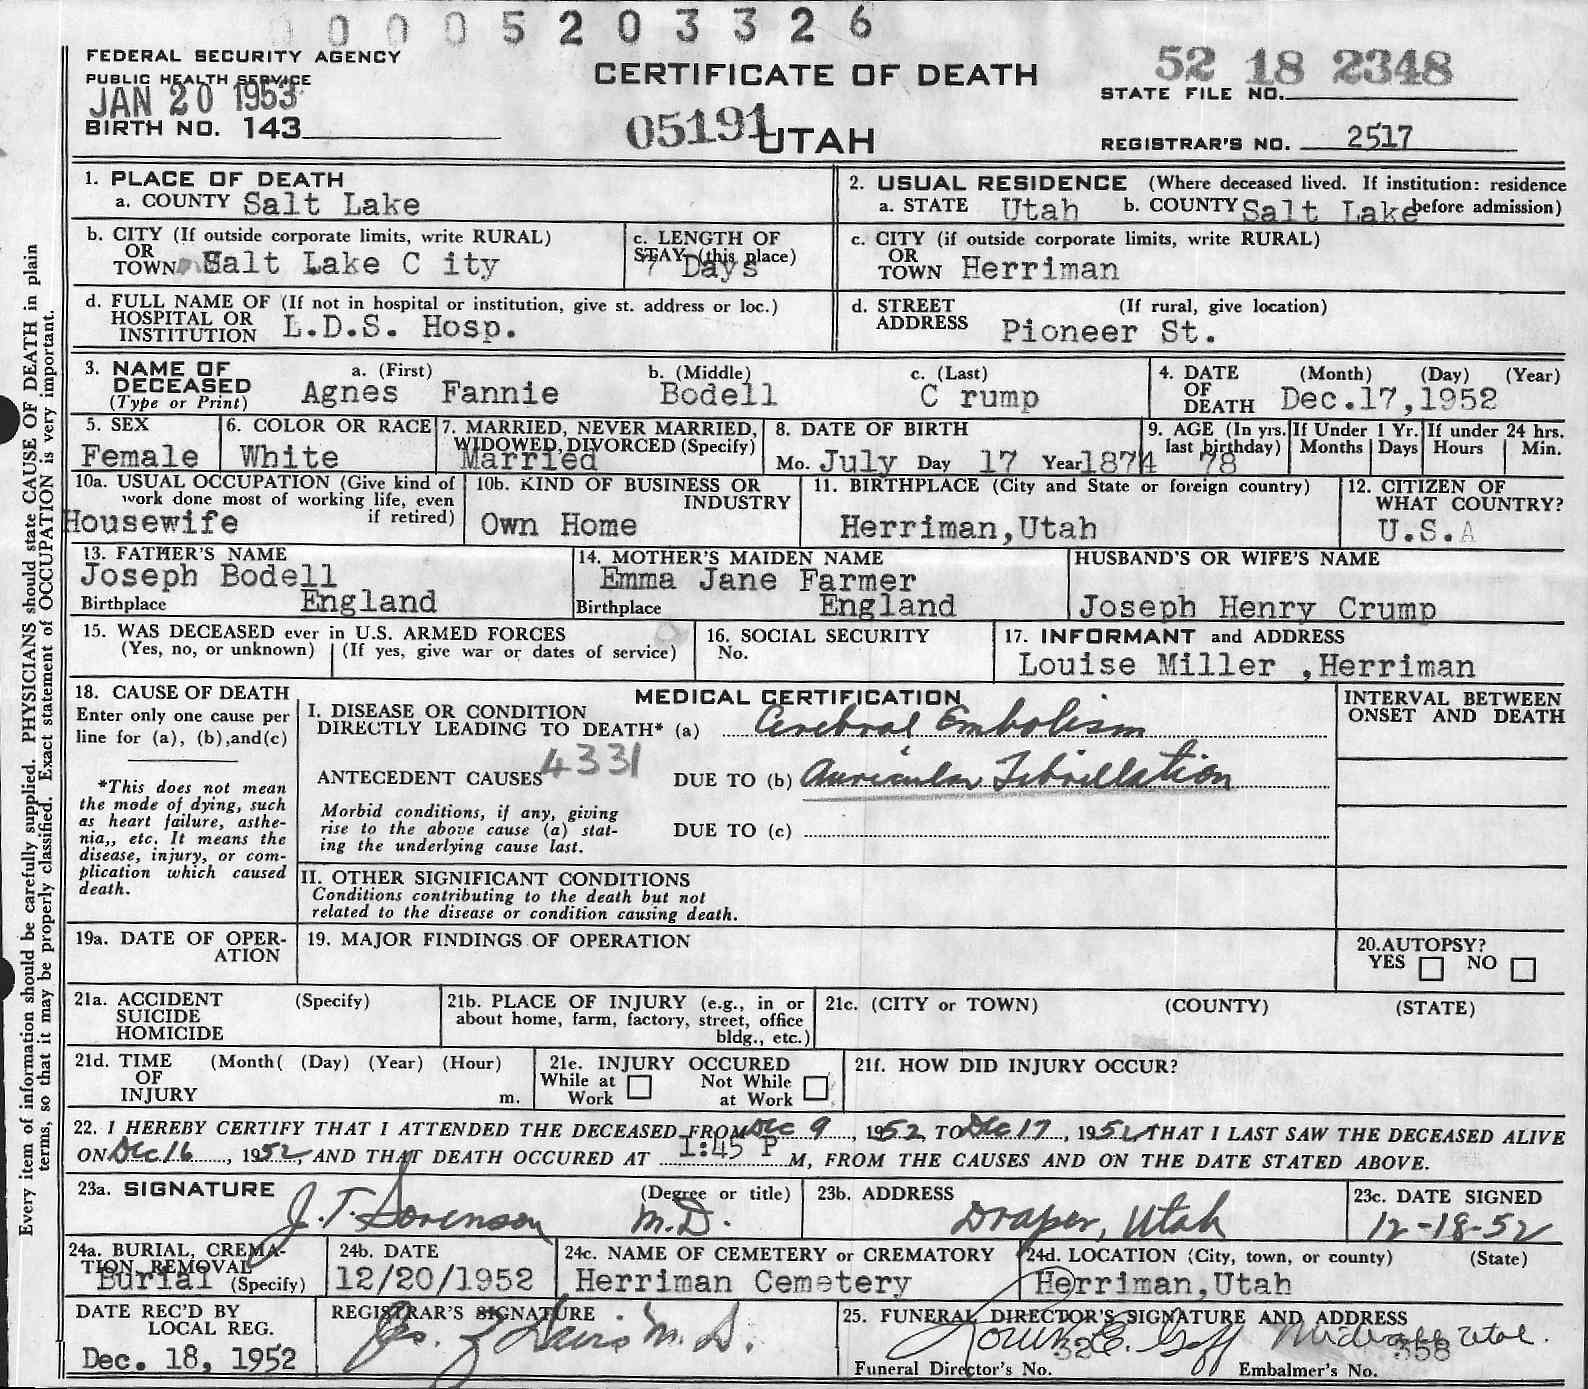 0 0 0 5 2 0 3 3 2 6
FEDERAL SECURITY AGENCY
PUBLIC HEALTH SERVICE
JAN 20 1953
BIRTH NO. 143
CERTIFICATE OF DEATH
05191 UTAH
52 18 2348
STATE FILE NO.
REGISTRAR'S NO. 2517
Every item of information should be carefully supplied. PHYSICIANS should state CAUSE OF DEATH in plain
terms, so that it may be properly classified. Exact statement of OCCUPATION is very important.
1. PLACE OF DEATH
a. COUNTY Salt Lake
2. USUAL RESIDENCE (Where deceased lived. If institution: residence
a. STATE Utah b. COUNTY Salt Lake before admission)
b. CITY (If outside corporate limits, write RURAL)
OR
TOWN Salt Lake C ity
c. LENGTH OF
STAY (this place)
7 Days
c. CITY (if outside corporate limits, write RURAL)
OR
TOWN Herriman
d. FULL NAME OF (If not in hospital or institution, give st. address or loc.)
HOSPITAL OR
INSTITUTION L.D.S. Hosp.
d. STREET (If rural, give location)
ADDRESS Pioneer St.
3. NAME OF a. (First) b. (Middle) c. (Last)
DECEASED
(Type or Print) Agnes Fannie Bodell C rump
4. DATE (Month) (Day) (Year)
OF
DEATH Dec.17,1952
5. SEX
Female
6. COLOR OR RACE
White
7. MARRIED, NEVER MARRIED,
WIDOWED, DIVORCED (Specify)
Married
8. DATE OF BIRTH
Mo. July Day 17 Year 1874
9. AGE (In yrs.
last birthday)
78
If Under 1 Yr.
Months Days
If under 24 hrs.
Hours Min.
10a. USUAL OCCUPATION (Give kind of
work done most of working life, even
if retired)
Housewife
10b. KIND OF BUSINESS OR
INDUSTRY
Own Home
11. BIRTHPLACE (City and State or foreign country)
Herriman,Utah
12. CITIZEN OF
WHAT COUNTRY?
U.S.A
13. FATHER'S NAME
Joseph Bodell
Birthplace England
14. MOTHER'S MAIDEN NAME
Emma Jane Farmer
Birthplace England
HUSBAND'S OR WIFE'S NAME
Joseph Henry Crump
15. WAS DECEASED ever in U.S. ARMED FORCES
(Yes, no, or unknown) (If yes, give war or dates of service)
16. SOCIAL SECURITY
No.
17. INFORMANT and ADDRESS
Louise Miller ,Herriman
18. CAUSE OF DEATH
Enter only one cause per
line for (a), (b),and(c)
*This does not mean
the mode of dying, such
as heart failure, asthe-
nia,, etc. It means the
disease, injury, or com-
plication which caused
death.
MEDICAL CERTIFICATION
I. DISEASE OR CONDITION
DIRECTLY LEADING TO DEATH* (a) Cerebral Embolism
ANTECEDENT CAUSES 4331 DUE TO (b) Auricular Fibrillation
Morbid conditions, if any, giving
rise to the above cause (a) stat-
ing the underlying cause last.
DUE TO (c)
II. OTHER SIGNIFICANT CONDITIONS
Conditions contributing to the death but not
related to the disease or condition causing death.
INTERVAL BETWEEN
ONSET AND DEATH
19a. DATE OF OPER-
ATION
19. MAJOR FINDINGS OF OPERATION
20.AUTOPSY?
YES NO
21a. ACCIDENT (Specify)
SUICIDE
HOMICIDE
21b. PLACE OF INJURY (e.g., in or
about home, farm, factory, street, office
bldg., etc.)
21c. (CITY or TOWN) (COUNTY) (STATE)
21d. TIME (Month( (Day) (Year) (Hour)
OF
INJURY m.
21e. INJURY OCCURED
While at Not While
Work at Work
21f. HOW DID INJURY OCCUR?
22. I HEREBY CERTIFY THAT I ATTENDED THE DECEASED FROM Dec 9, 1952, TO Dec 17, 1952 THAT I LAST SAW THE DECEASED ALIVE
ON Dec 16, 1952, AND THAT DEATH OCCURED AT 1:45 P M, FROM THE CAUSES AND ON THE DATE STATED ABOVE.
23a. SIGNATURE (Degree or title)
J.T. Sorenson M.D.
23b. ADDRESS
Draper, Utah
23c. DATE SIGNED
12-18-52
24a. BURIAL, CREMA-
TION, REMOVAL
Burial (Specify)
24b. DATE
12/20/1952
24c. NAME OF CEMETERY or CREMATORY
Herriman Cemetery
24d. LOCATION (City, town, or county) (State)
Herriman,Utah
DATE REC'D BY
LOCAL REG.
Dec. 18, 1952
REGISTRAR'S SIGNATURE
Davis M.D.
25. FUNERAL DIRECTOR'S SIGNATURE AND ADDRESS
E. Goff Midvale Utah.
Funeral Director's No. 32 Embalmer's No. 358